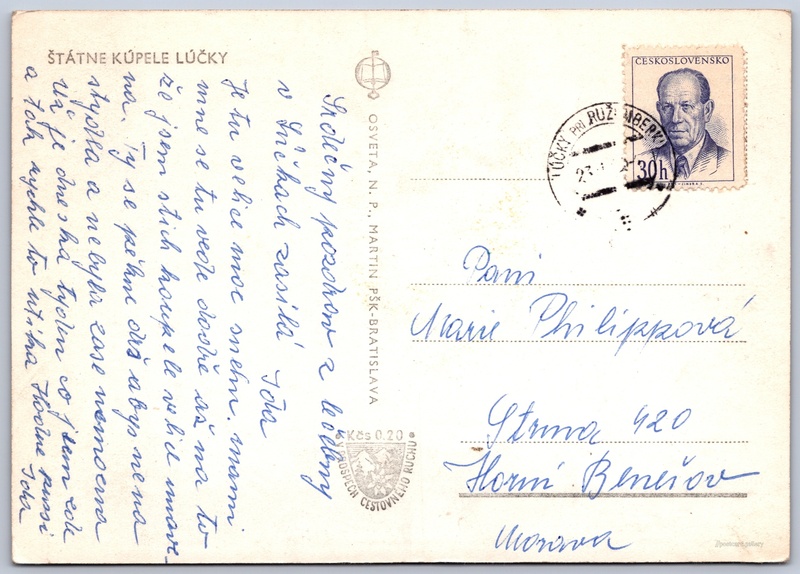 ŠTÁTNE KÚPELE LÚČKY
Srdečný pozdrav z léčebny
v Lúčkach zasílá Ida
Je tu velice moc sněhu. mami
mne se tu vede dobře až na to
že jsem z tich koupele velice unav-
na. Ty se pěkně drž abys ne na
stydla a nebyla zase nemocna
Už je dneska tyden co jsem zde
a tak rychle to utika Hodně pusi
Ida
OSVETA, N. P., MARTIN PŠK-BRATISLAVA
Kčs 0.20
V PROSPECH CESTOVNÉHO RUCHU
ČESKOSLOVENSKO
30h
LÚČKY PRI RUŽOMBERKU
23
Paní
Marie Philippová
Strma 420
Horní Benešov
Morava